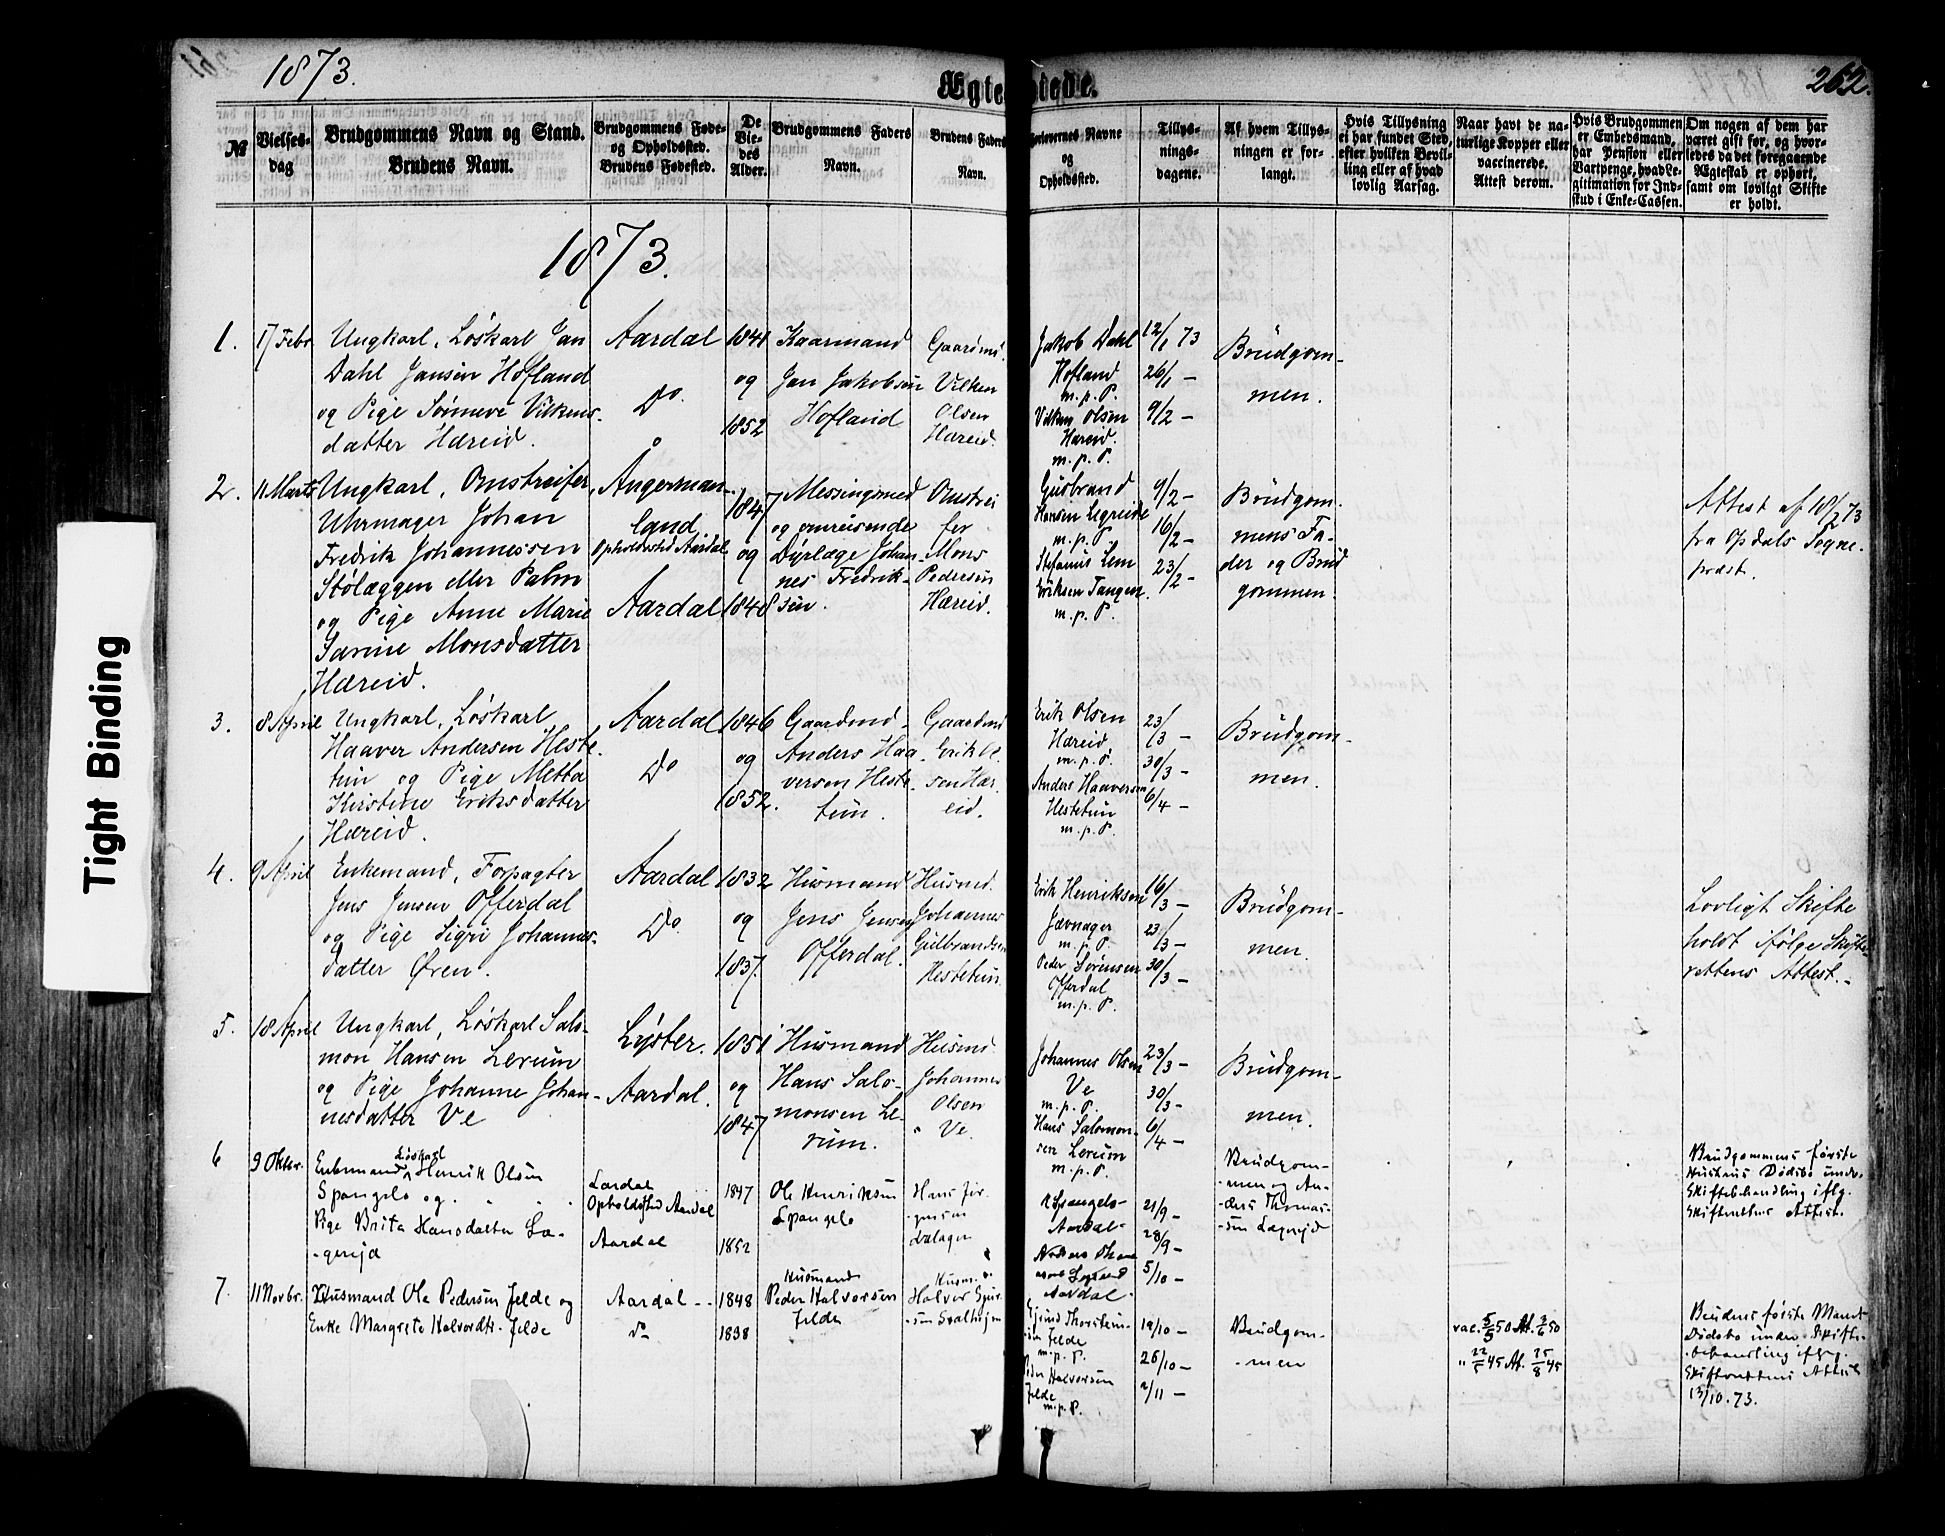 1873.
Ægte
tede.
262.
№
Vielses-
dag
Brudgommens Navn og Stand.
Brudens Navn.
Brudgommens Føde-
og Opholdssted.
Brudens Fødested.
De
Vie-
des
Alder.
Brudgommens Faders
Navn.
Brudens Faders
Navn.
Forlovernes Navne
og
Opholdssted.
Tillys-
nings-
dagene.
Af hvem Tillys-
ningen er for-
langt.
Hvis Tillysning
ei har fundet Sted,
efter hvilken Bevil-
ling eller af hvad
lovlig Aarsag.
Naar havt de na-
turlige Kopper eller
vaccinerede.
Attest derom.
Hvis Brudgommen
er Embedsmand,
har Pension eller
Vartpenge, hvad Le-
gitimation for Ind-
skud i Enke-Cassen.
Om nogen af dem har
været gift før, og hvor-
ledes da det foregaaende
Ægteskab er ophørt,
samt om lovligt Skifte
er holdt.
1873.
1.
17 Febr
Ungkarl, Løskarl Jan
Dahl Jansen Hofland
og Pige Sønneve Vilkens-
datter Hæreid.
Aardal
Do
1841
og
1852
Kaarmand
Jan Jakobsen
Hofland
Gaardm.
Vilken
Olsen
Hæreid.
Jakob Dahl
Hofland
m.p.P.
Vilken Olsen
Hæreid.
m.p.P.
12/1 73
26/1 —
9/2 —
Brudgom-
men.
2.
11 Marts
Ungkarl, Omstreifer,
Uhrmager Johan
Fredrik Johannessen
Stølæggen eller Palm
og Pige Anne Marie
Sarine Monsdatter
Hæreid.
Ångerman-
land
Opholdssted Aardal
Aardal
1847
og
1848
Messingsmed
og omreisende
Dyrlæge Johan-
nes Fredrik-
sen.
Omstrei
fer
Mons
Pedersen
Hæreid.
Gudbrand
Hansen Legreide
m.p.P.
Stefanus Lem
Eriksen Tangen.
m.p.P.
9/2 —
16/2 —
23/2 —
Brudgom.
mens Fa-
der og Brud
gommen.
Attest af 18/2 73
fra Opdals Sogne-
præst.
3.
8 April
Ungkarl, Løskarl
Haaver Andersen Heste-
tun og Pige Metta
Kirstine Eriksdatter
Hæreid.
Aardal
Do
1846
og
1852.
Gaardmd
Anders Haa-
versen Heste-
tun.
Gaardmd
Erik Ol-
sen Hær-
eid.
Erik Olsen
Hæreid
m.p.P.
Anders Haaversen
Hestetun
m.p.P.
23/3 —
30/3 —
6/4 —
Brudgom-
men.
4.
9 April
Enkemand, Forpagter
Jens Jensen Offerdal
og Pige Sigri Johannes-
datter Øren.
Aardal
Do
1832
og
1837.
Husmand
Jens Jensen
Offerdal.
Husmd.
Johannes
Gulbrandsen
Hestetun.
Erik Henriksen
Jævnager
m.p.P.
Peder Sørensen
Offerdal
m.p.P.
16/3 —
23/3 —
30/3 —
Brudgom-
men.
Lovligt Skifte
holdt ifølge Skifte-
rettens Attest.
5.
18 April
Ungkarl, Løskarl Salo-
mon Hansen Lerum
og Pige Johanne Johan-
nesdatter Ve
Lyster.
Aardal.
1851
og
1847
Husmand
Hans Salo-
monsen Le-
rum.
Husmd
Johannes
Olsen
Ve.
Johannes Olsen
Ve
m.p.P.
Hans Salomon-
sen Lerum
m.p.P.
23/3 —
30/3 —
6/4 —
Brudgom-
men.
6
9 Oktbr.
Enkemand Løskarl Henrik Olsen
Spangelo og
Pige Brita Hansdatter Læ-
-greid
Lærdal
Opholdssted Aardal
Aardal
1847
1852
Ole Henriksen
Spangelo
Hans Jør-
-gensen
Spangelo
Aardal
Aardal.
21/9 —
28/9 —
5/10 —
Brudgom-
-men og An-
-ders Thomas-
-sen Lægreid
Brudgommens første
Hustrus Dødsbo under
Skiftebehandling iflg.
Skifterettens Attest.
7.
11 Novbr.
Husmand Ole Pedersen Jelde og
Enke Margrete Halvordtr. Jelde
Aardal --
do
1848
1838
Husmand
Peder Halvorsen
Jelde
Husm.
Halvor
Ejvind Thorstein-
sen Jelde
m.p.P.
Peder Halvorsen
Jelde
m.p.P.
19/10 —
26/10 —
2/11 —
Brudgom-
-men
vac. 5/5 50 At. 3/6 50
Brudens første Mands
Dødsbo under Skifte-
-behandling iflg.
Skifterettens Attest
13/10.73.
Tight Binding